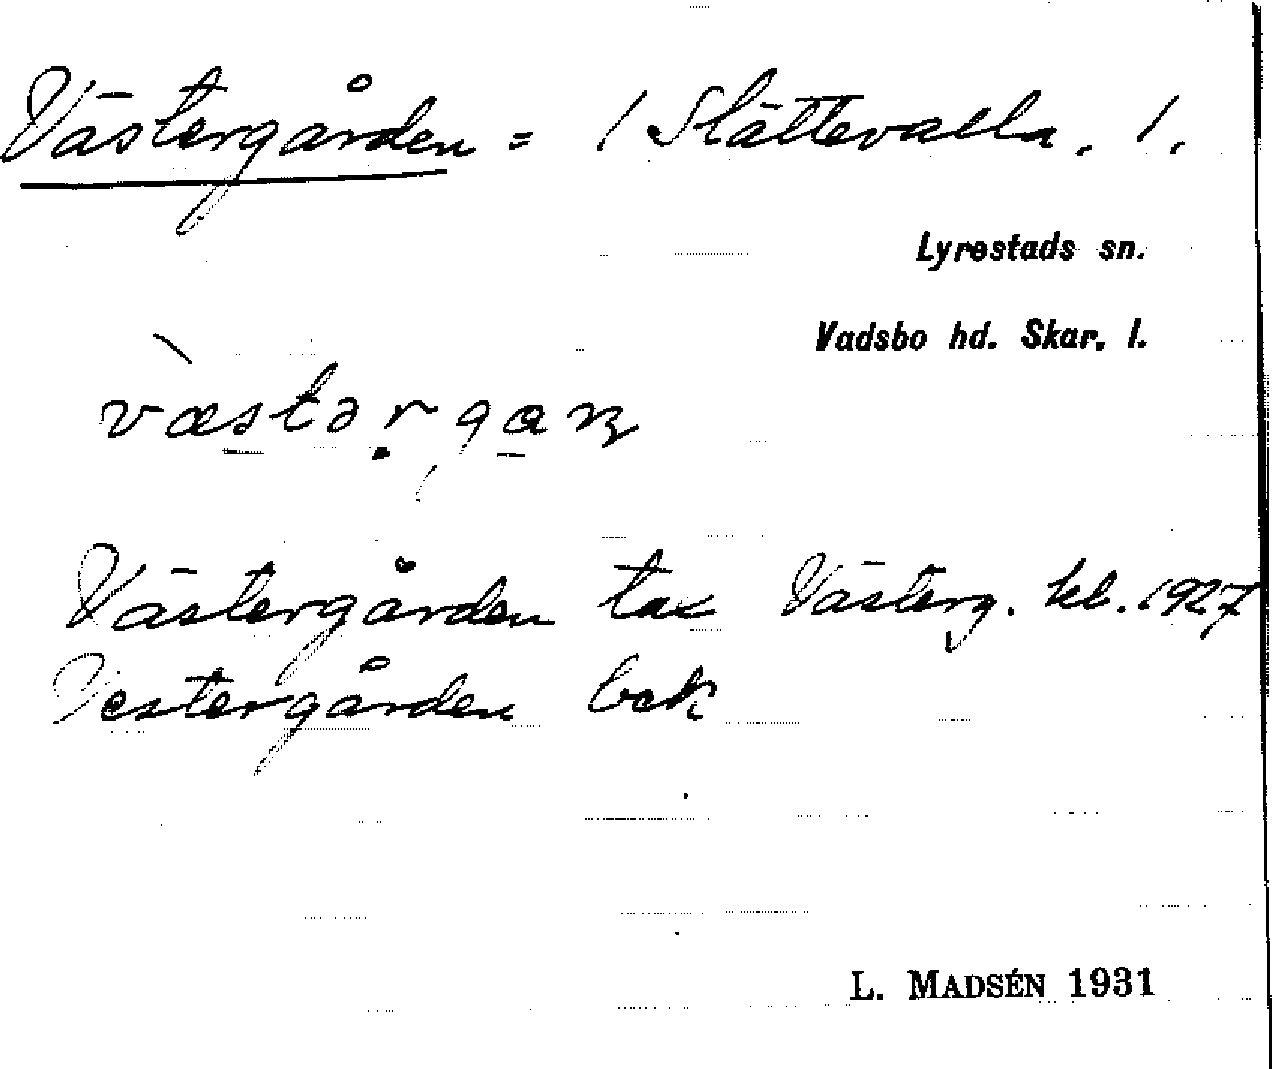 Västergården = / Slättevalla. 1.
Lyrestads sn.
Vadsbo hd. Skar. l.
væstərgaɲ
Västergården tax Västerg. kl. 1927
Vestergården bek
L. MADSÉN 1931